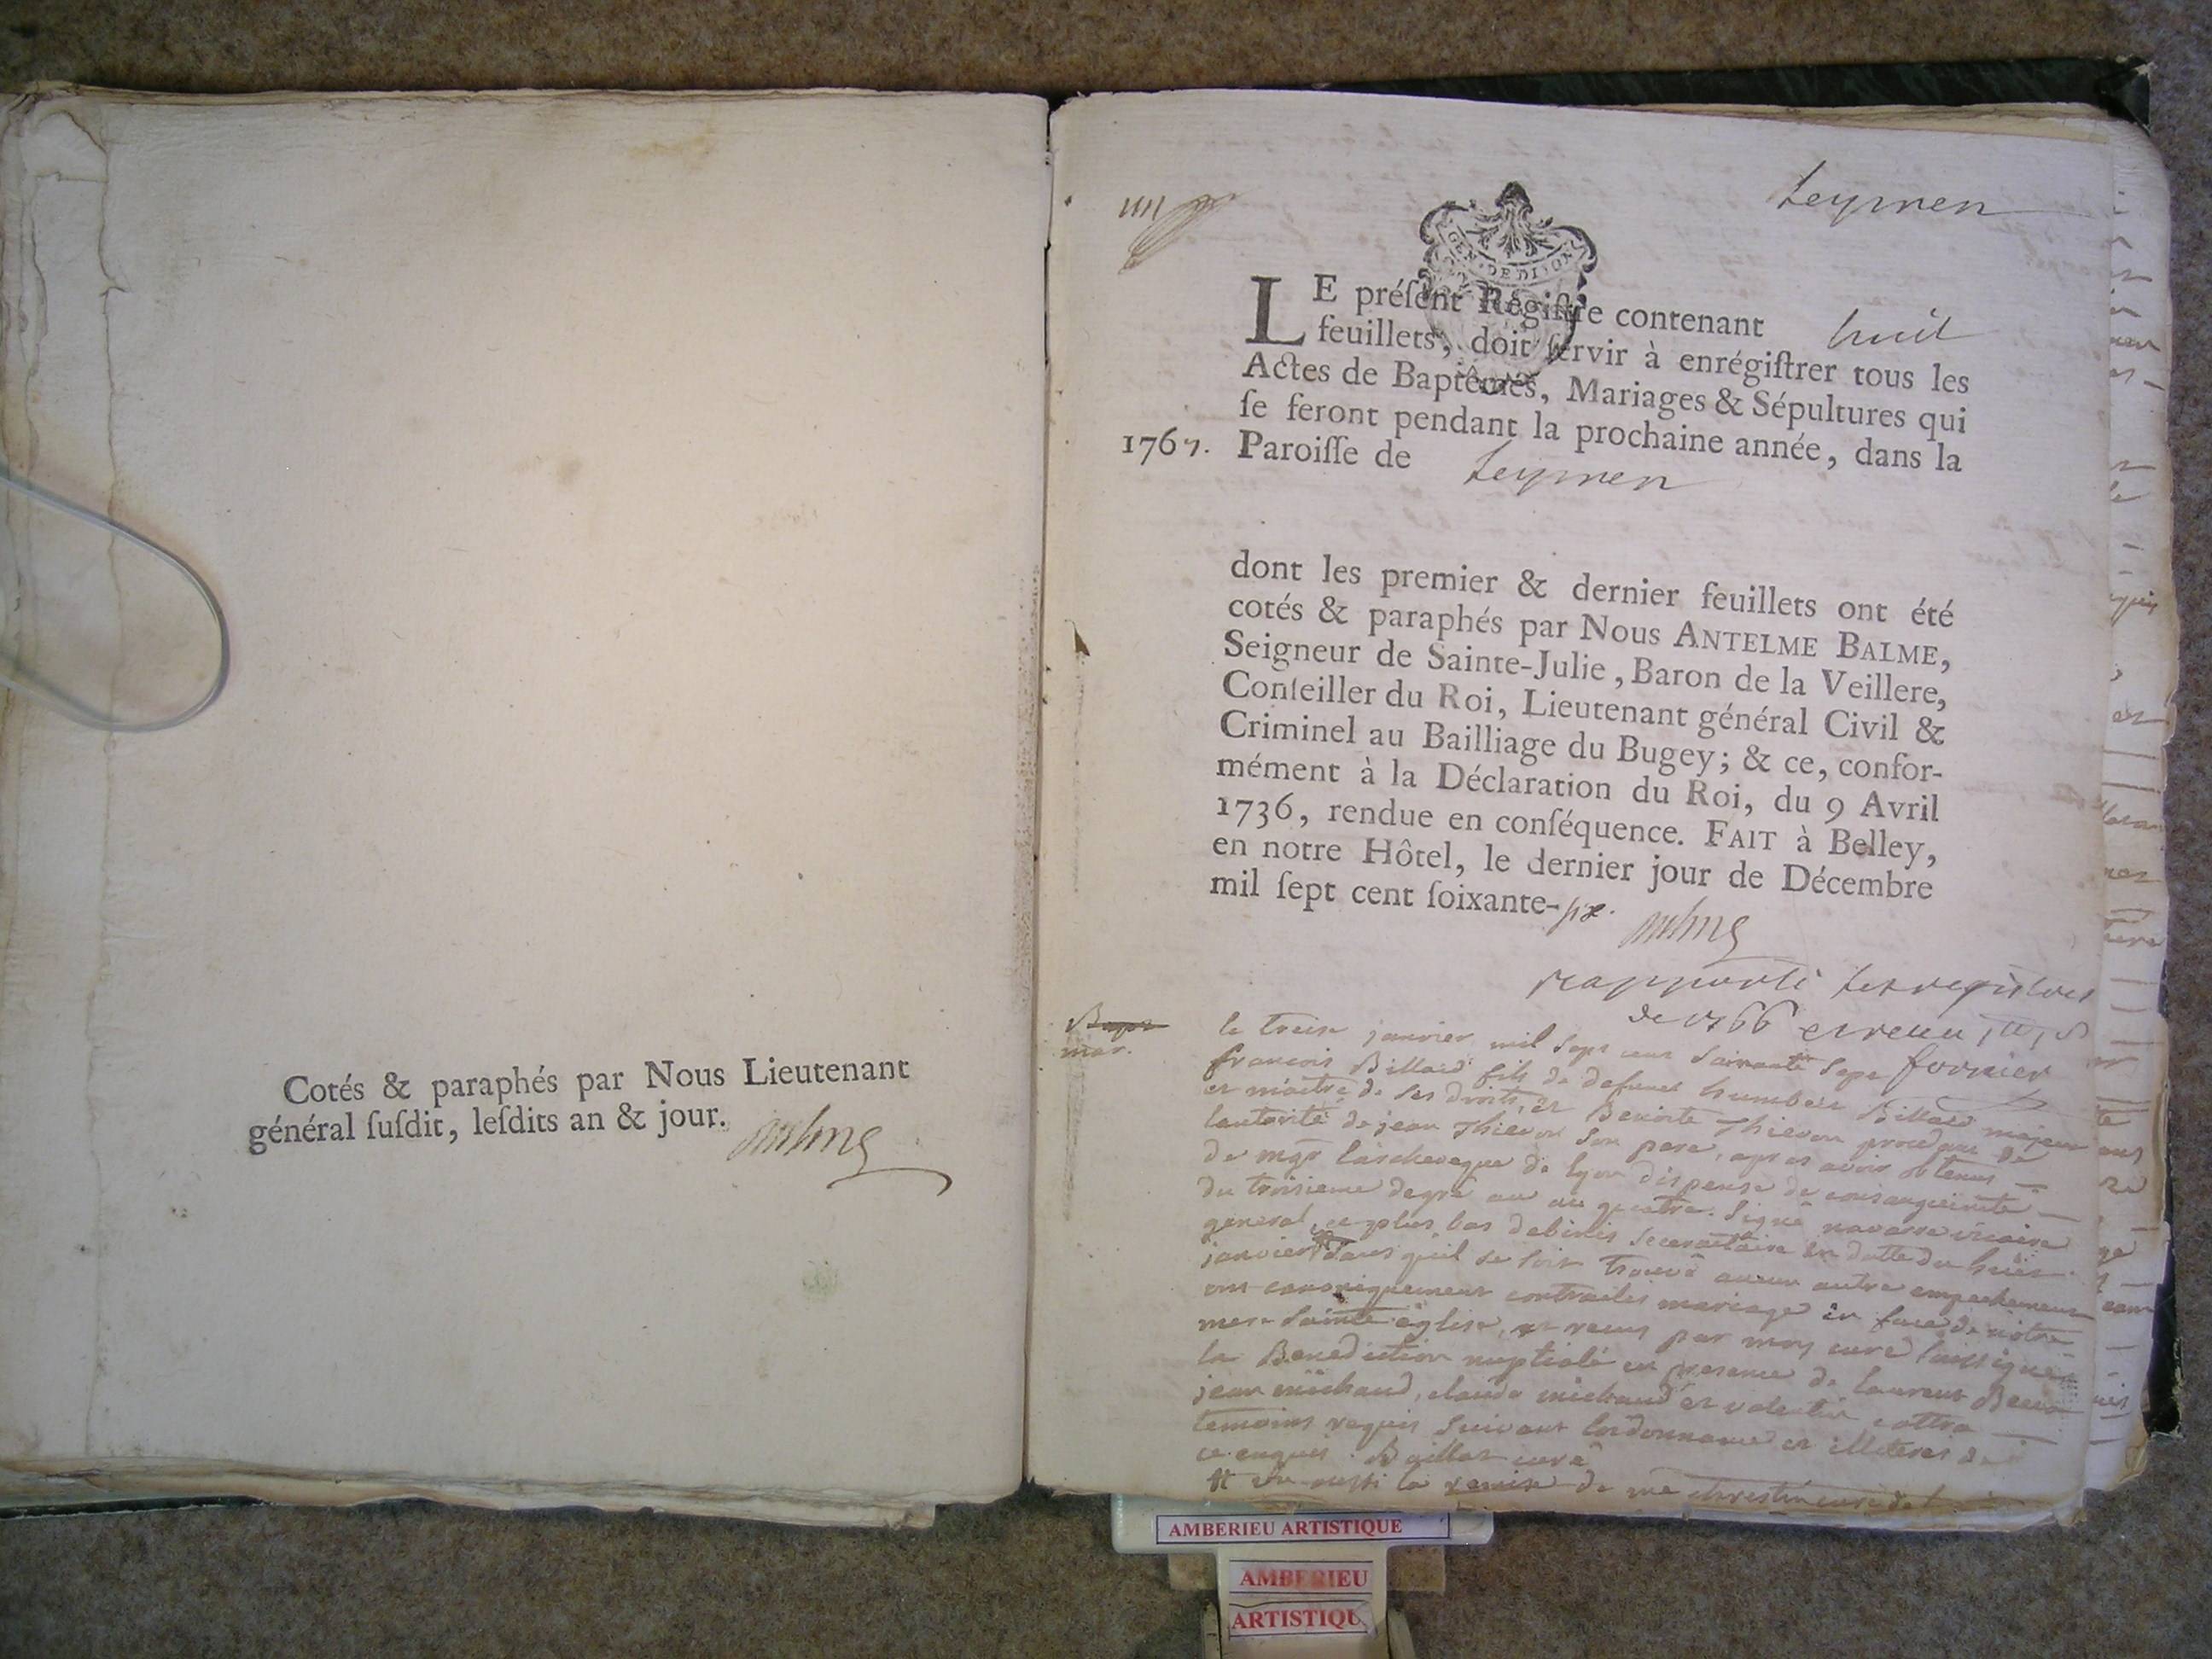 Cotés & paraphés par Nous Lieutenant
général ſuſdit, leſdits an & jour.
Leymen
GEN. DE DIJON
LE préſent Régiſtre contenant huit
feuillets, doit ſervir à enrégiſtrer tous les
Actes de Baptêmes, Mariages & Sépultures qui
ſe feront pendant la prochaine année, dans la
1767. Paroiſſe de Leymen
dont les premier & dernier feuillets ont été
cotés & paraphés par Nous ANTELME BALME,
Seigneur de Sainte-Julie, Baron de la Veillere,
Conſeiller du Roi, Lieutenant général Civil &
Criminel au Bailliage du Bugey; & ce, confor-
mément à la Déclaration du Roi, du 9 Avril
1736, rendue en conſéquence. FAIT à Belley,
en notre Hôtel, le dernier jour de Décembre
mil ſept cent ſoixante-six.
rapporté les registres
de 1766
mar.
le treize janvier mil sept cent soixante sept
françois Billard fils de defunct humbert Billard majeur
et maitre de ses droits, et Benoite Thievon procedant de
lautorité de jean Thievon son pere, apres avoir obtenus
de mgr larcheveque de lyon dispense de consanguinité
du troisieme degré au quatre. signé navarre vicaire
general, et plus bas secretaire en datte du huit
janvier sans quil se soit trouvé aucun autre empechement
ont canoniquement contractes mariage en face de nôtre
mere sainte église, et recus par moy curé soussigné
la Benediction nuptiale en presence de laurent
jean michaud, claude michaud et valentin cottra
temoins requis suivant lordonnance et illeteres de
ce enquis. Baillat curé
vu aussi la remise de curé de
AMBERIEU ARTISTIQUE
AMBERIEU
ARTISTIQU